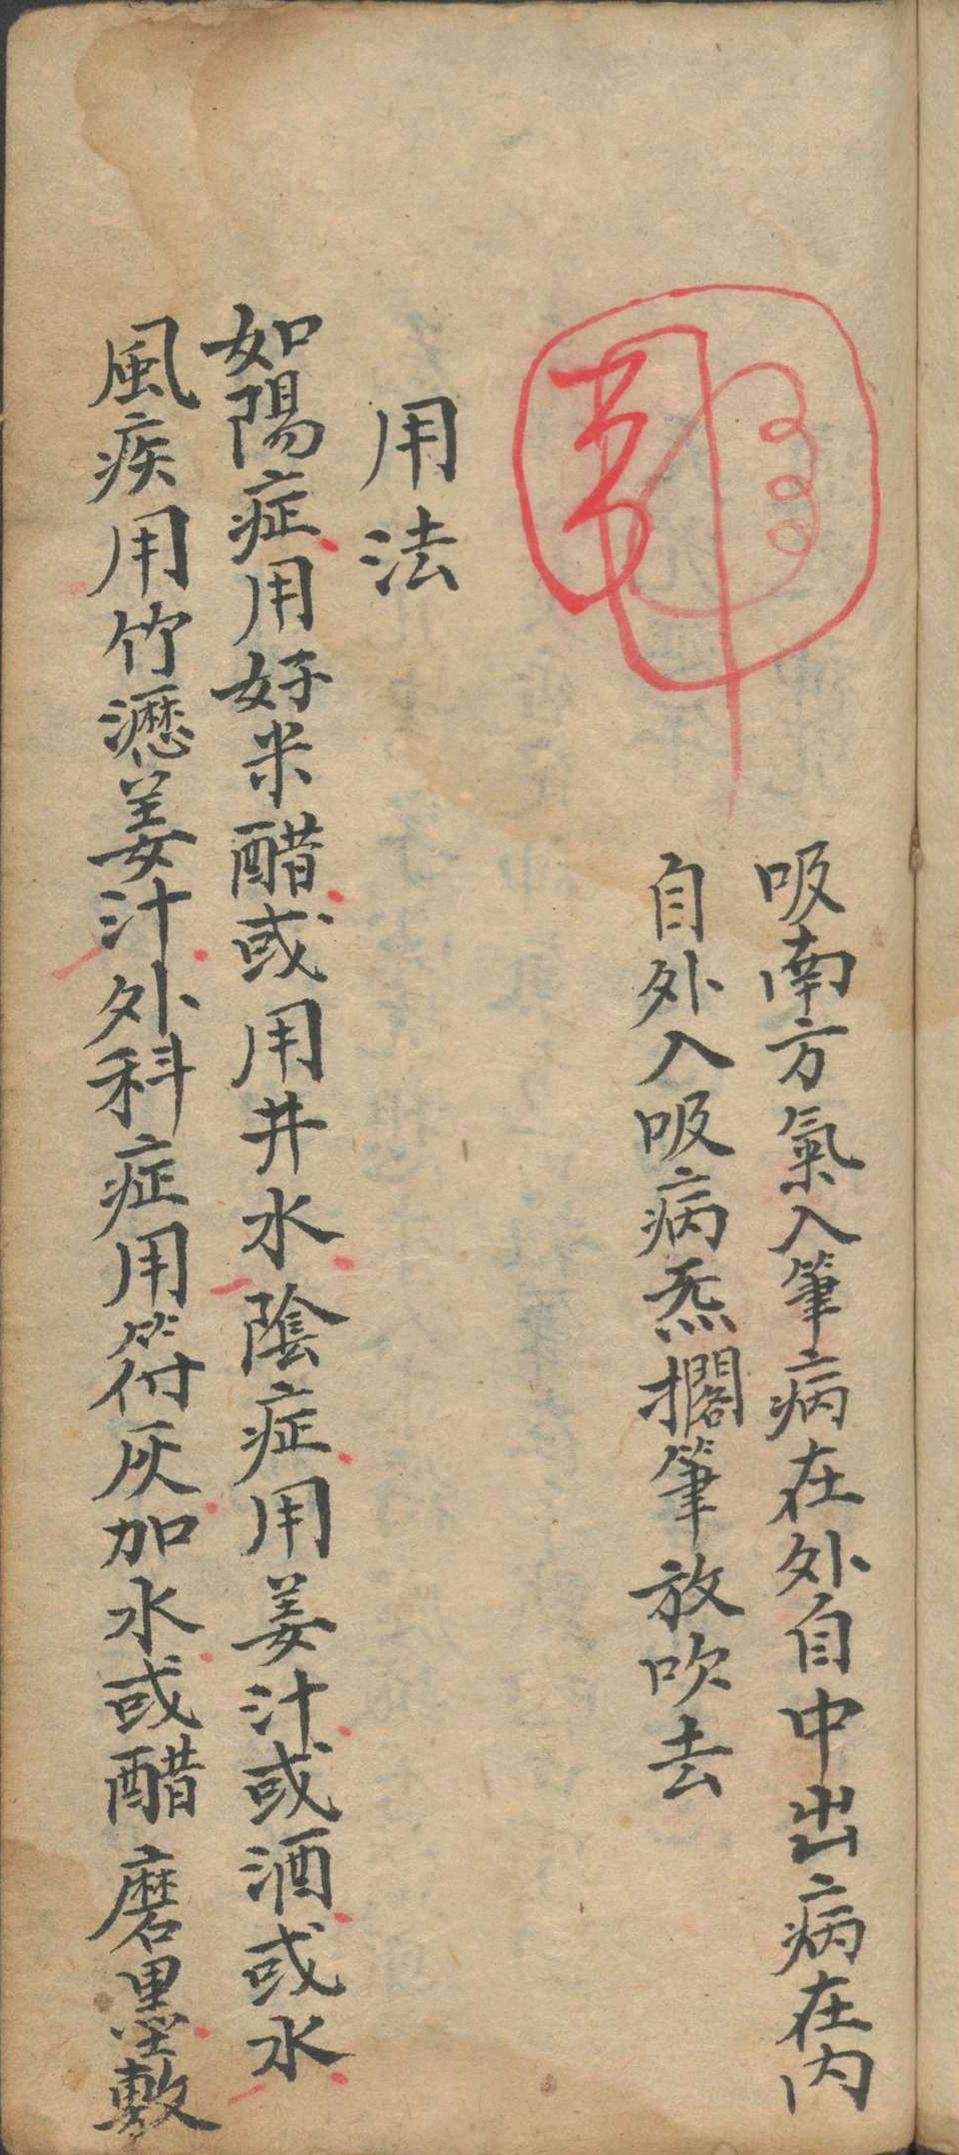 吸南方氣入筆病在外自中出病在內
自外入吸病炁擱筆放吹去
用法
如陽症用好米醋或用井水陰症用姜汁或酒或水
風疾用竹瀝姜汁外科症用符灰加水或醋磨墨敷